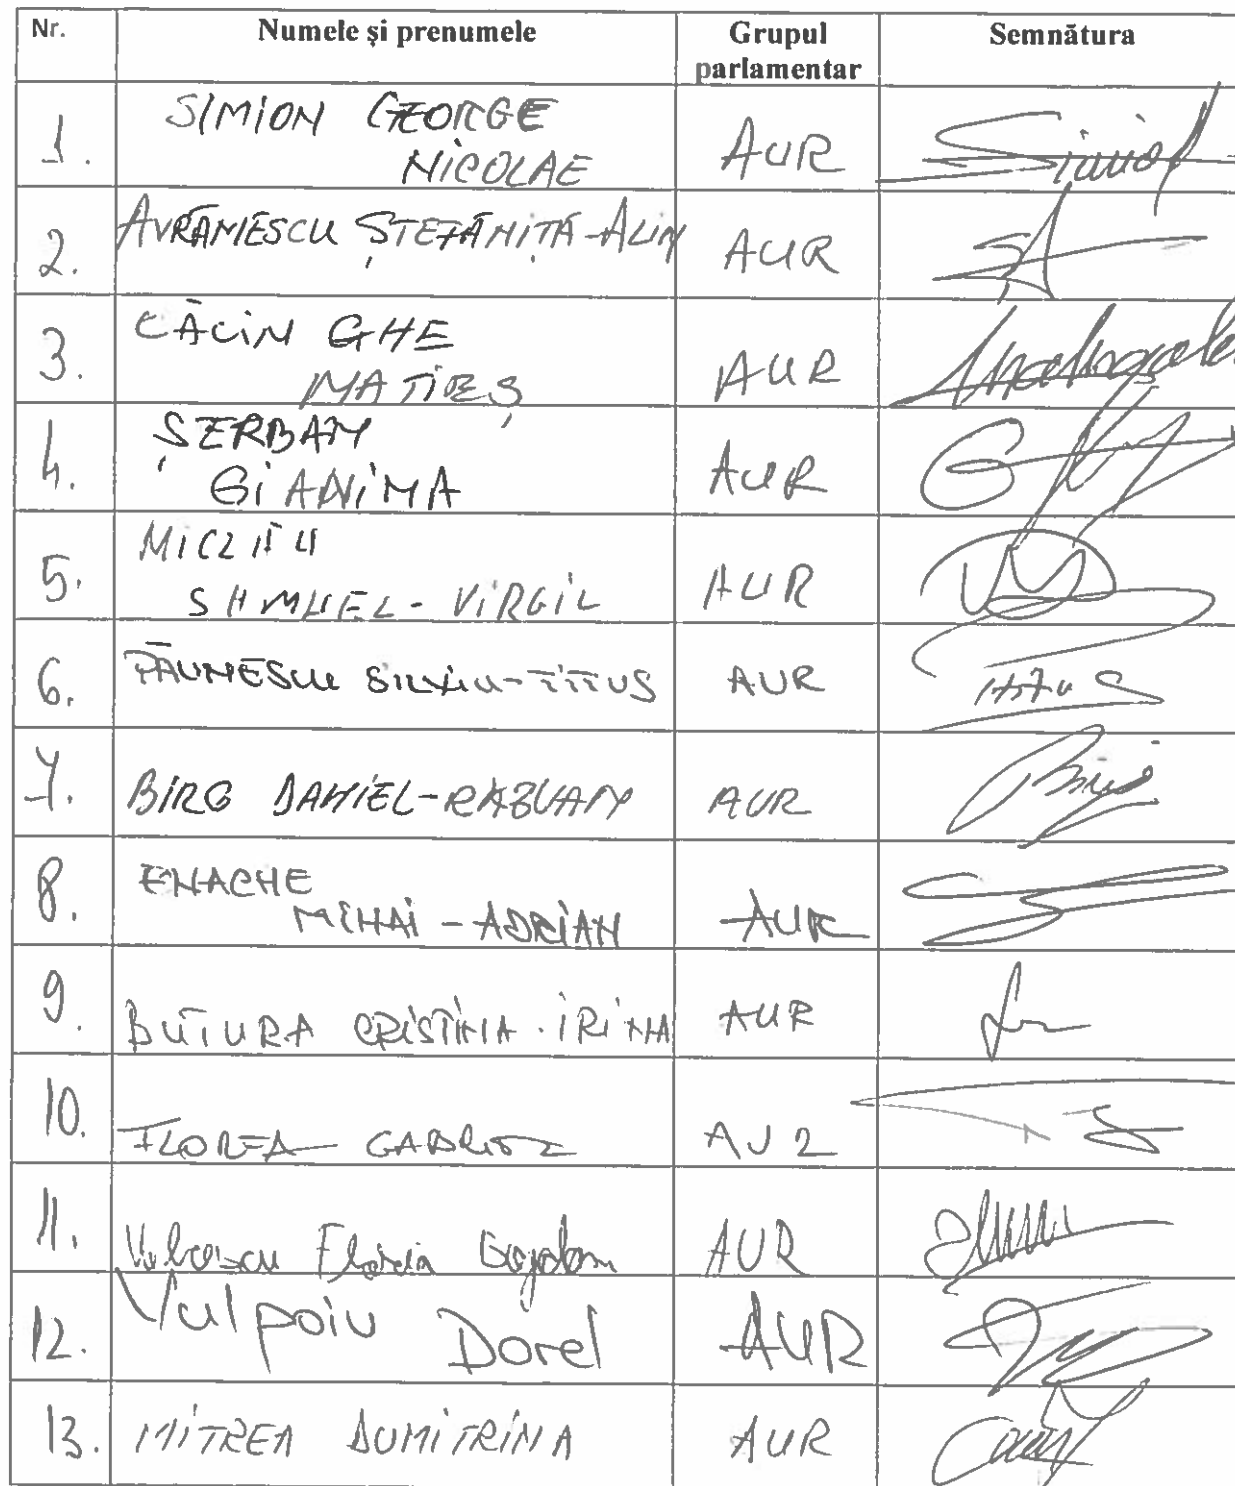 Nr. Numele și prenumele Grupul parlamentar Semnătura
1. SIMION GEORGE
NICOLAE AUR Simion
2. AVRĂMESCU ȘTEFĂNIȚĂ-ALIN AUR
3. CĂLIN GHE
MATIEȘ AUR
4. ȘERBAN
GIANINA AUR
5. SAMUEL-VIRGIL AUR
6. PĂUNESCU SILVIU-TITUS AUR Titus
7. BIRO DANIEL-RĂZVAN AUR
8. ENACHE
MIHAI-ADRIAN AUR
9. BUTURA CRISTINA-IRINA AUR
10. FLOREA GABRIEL AUR
11. Florin Bogdan AUR
12. Vulpoiu Dorel AUR
13. MITREA DUMITRINA AUR